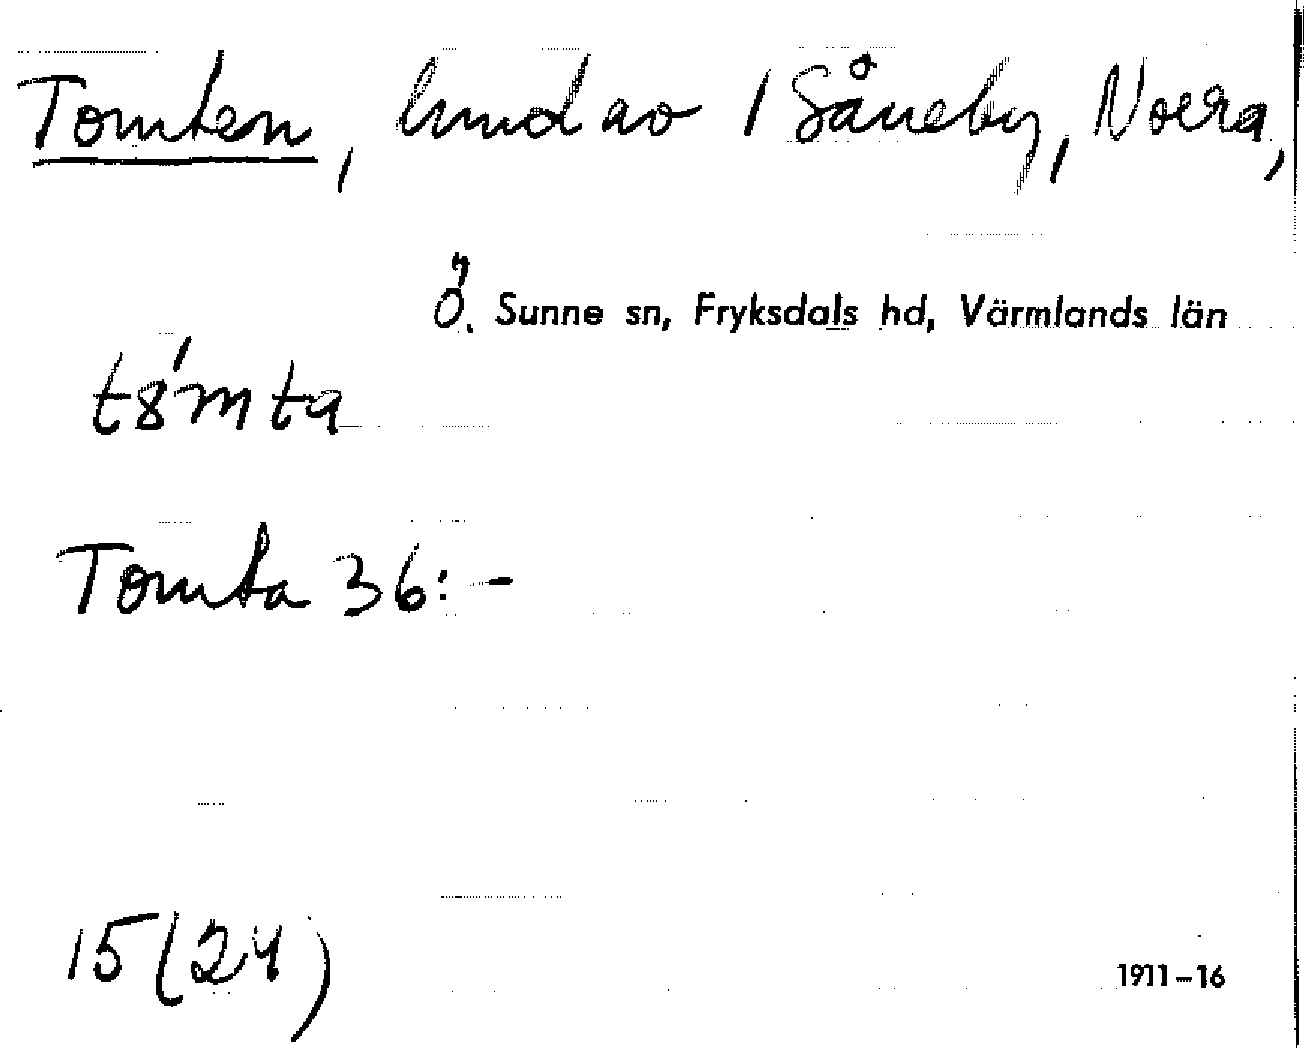 Tomten, hmd av 1 Såneby, Norra,
Ö. Sunne sn, Fryksdals hd, Värmlands län
tȣ́mta
Tomta 36:-
15(24)
1911-16